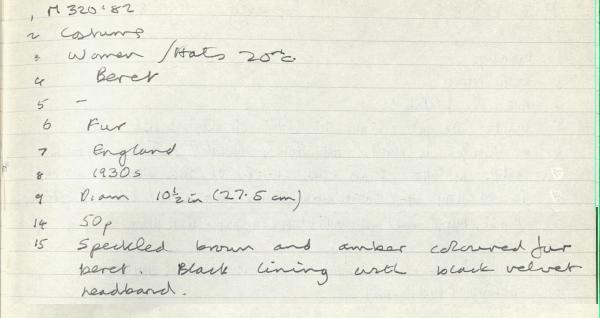 1 M 320'82
2 Costume
3 Women / Hats 20thc
4 Beret
5 -
6 Fur
7 England
8 1930s
9 Diam 10½ in (27.5 cm)
14 50p
15 Speckled brown and amber coloured fur
beret. Black lining with black velvet
headband.